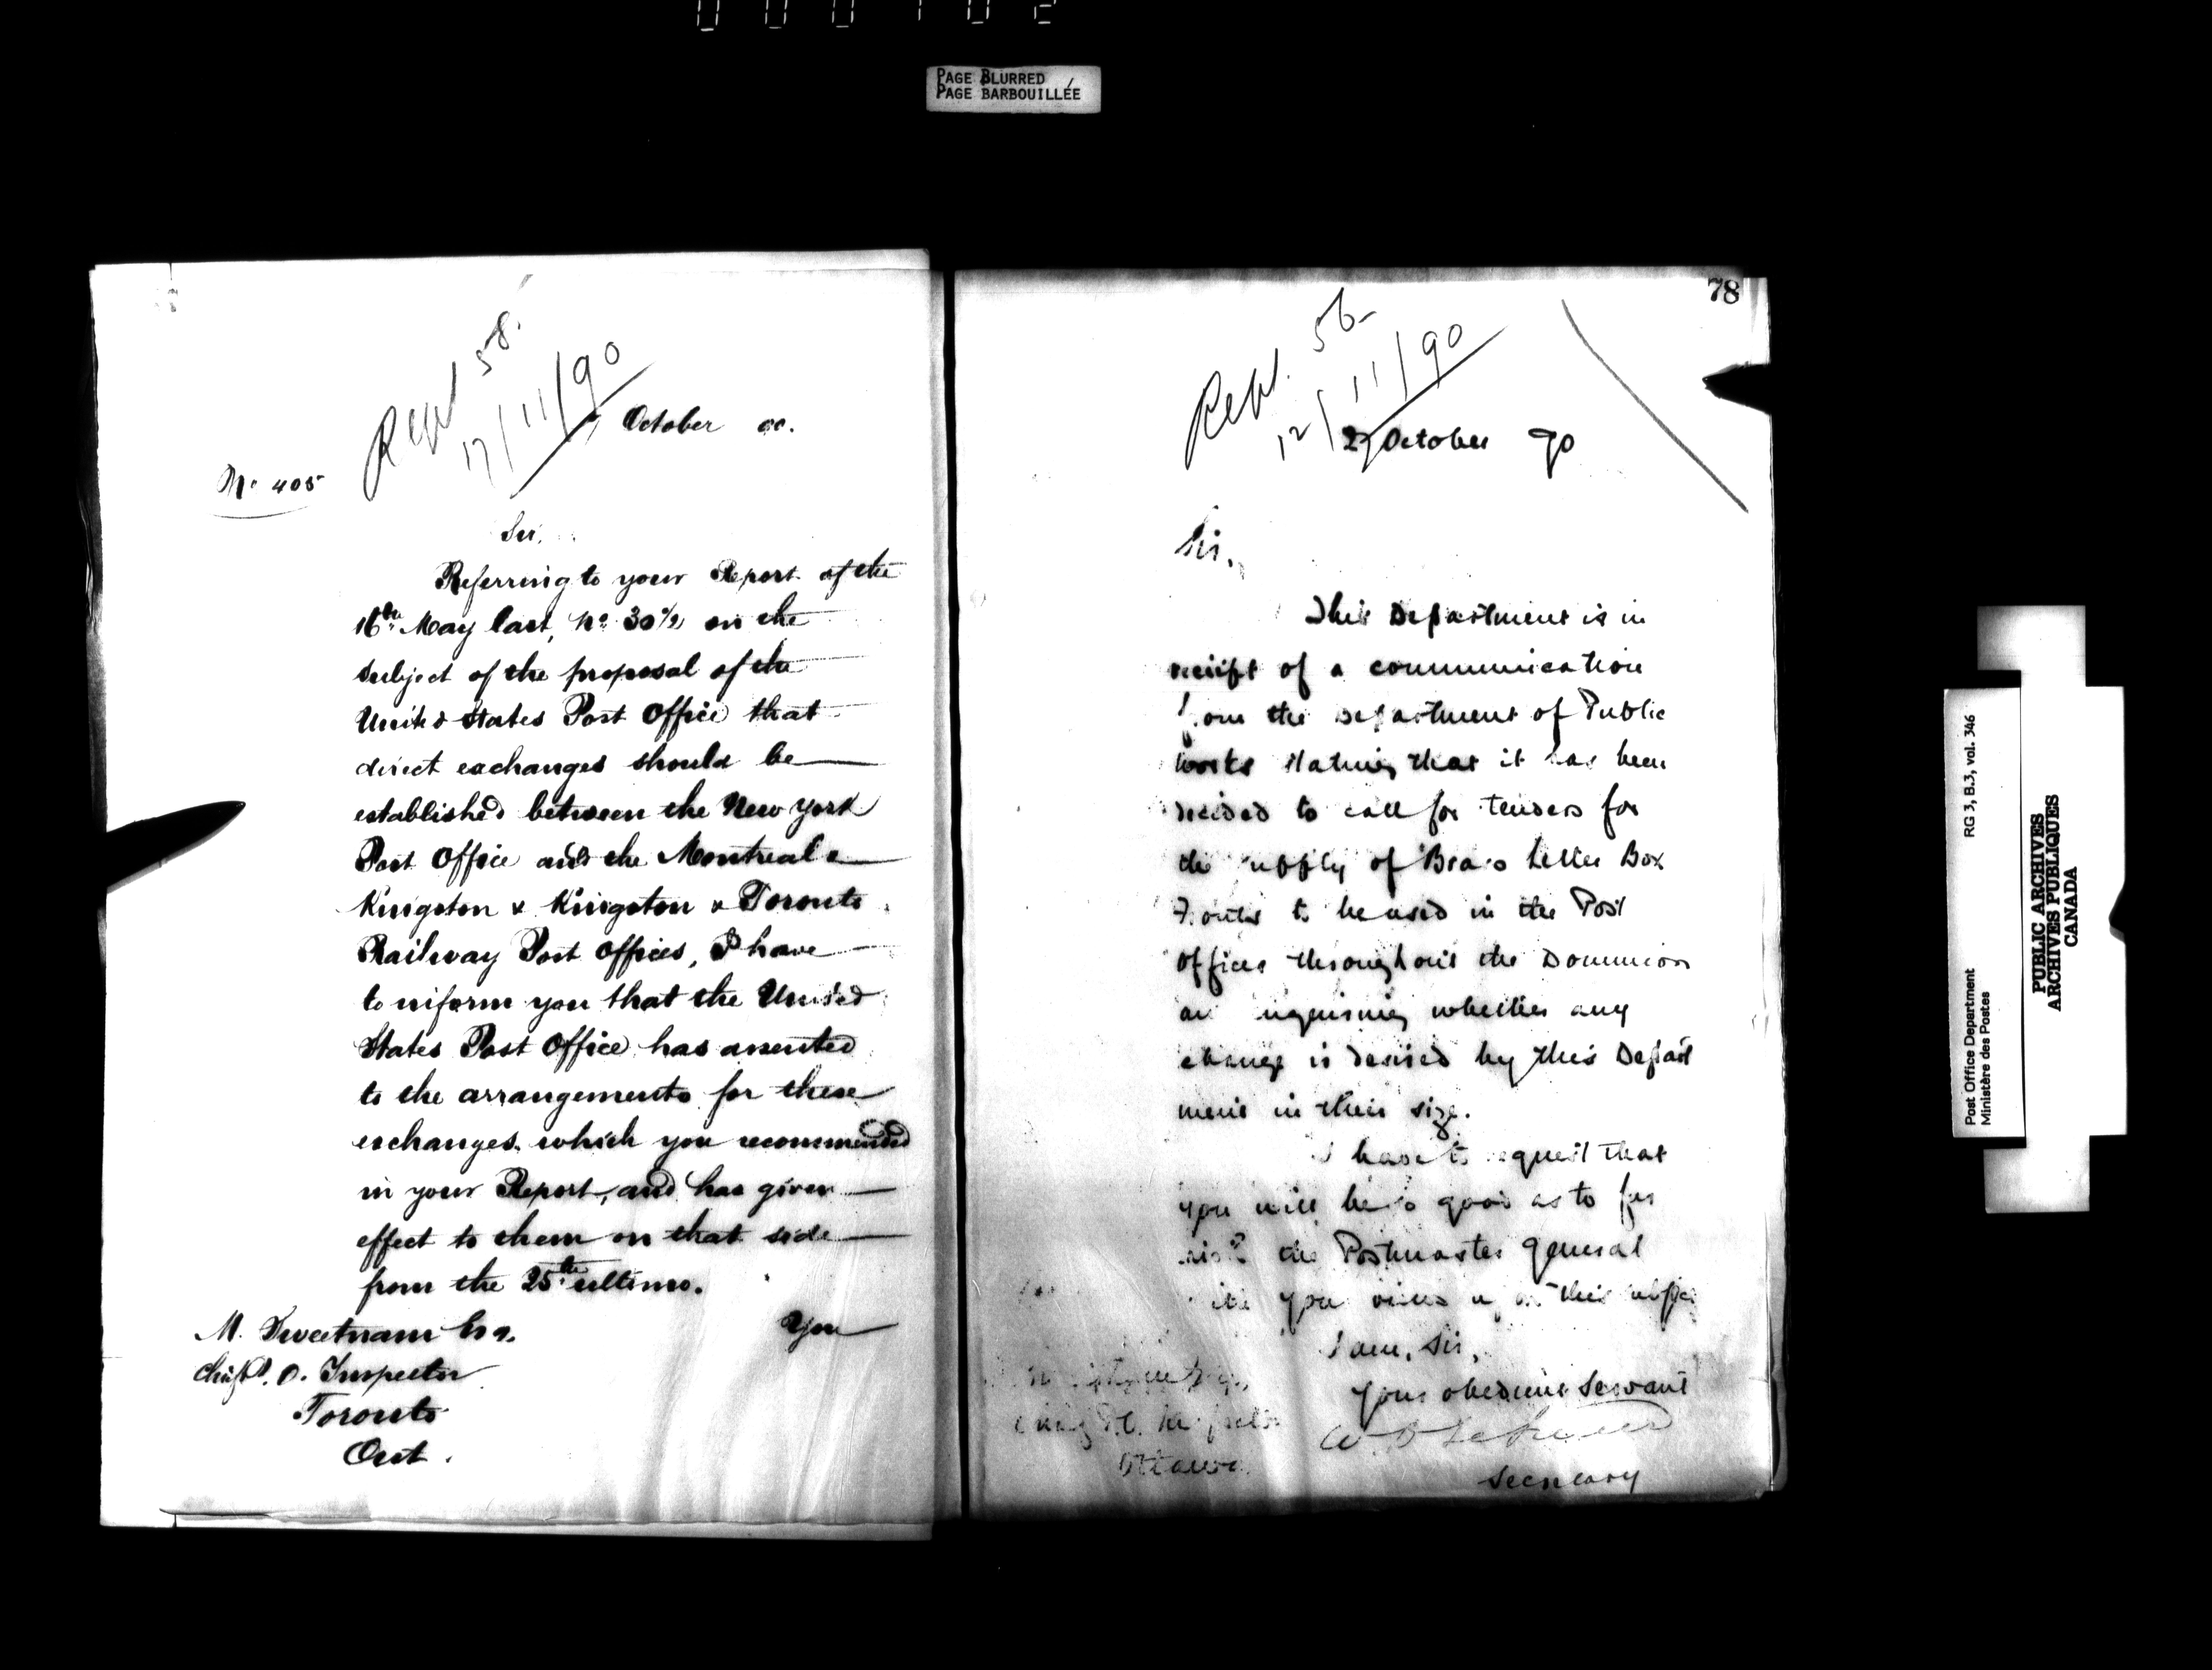 PAGE BLURRED
PAGE BARBOUILLÉE
Rept 58
17/11/90
October 90.
No 405
Sir,
Referring to your Report of the
16th May last, No 30½ on the
subject of the proposal of the
United States Post Office that
direct exchanges should be
established between the New York
Post Office and the Montreal &
Kingston & Kingston & Toronto
Railway Post Offices, I have
to inform you that the United
States Post Office has assented
to the arrangements for these
exchanges which you recommended
in your Report, and has given
effect to them on that side
from the 25th ultimo.
You
M. Sweetnam Esq.
Chief P. O. Inspector
Toronto
Ont.
78
Rept. 56
12/11/90
October 90
Sir,
This Department is in
receipt of a communication
from the Department of Public
Works stating that it has been
decided to call for tenders for
the supply of Brass Letter Box
Fronts to be used in the Post
Offices throughout the Dominion
and inquiring whether any
change is desired by this Depart
ment in their size.
I have to request that
you will be so good as to fur
nish the Postmaster General
your views on this
I am, Sir,
Your obedient Servant
Secretary
Chief P.O. Inspector
Ottawa
Post Office Department RG 3, B.3, vol. 346
Ministère des Postes
PUBLIC ARCHIVES
ARCHIVES PUBLIQUES
CANADA